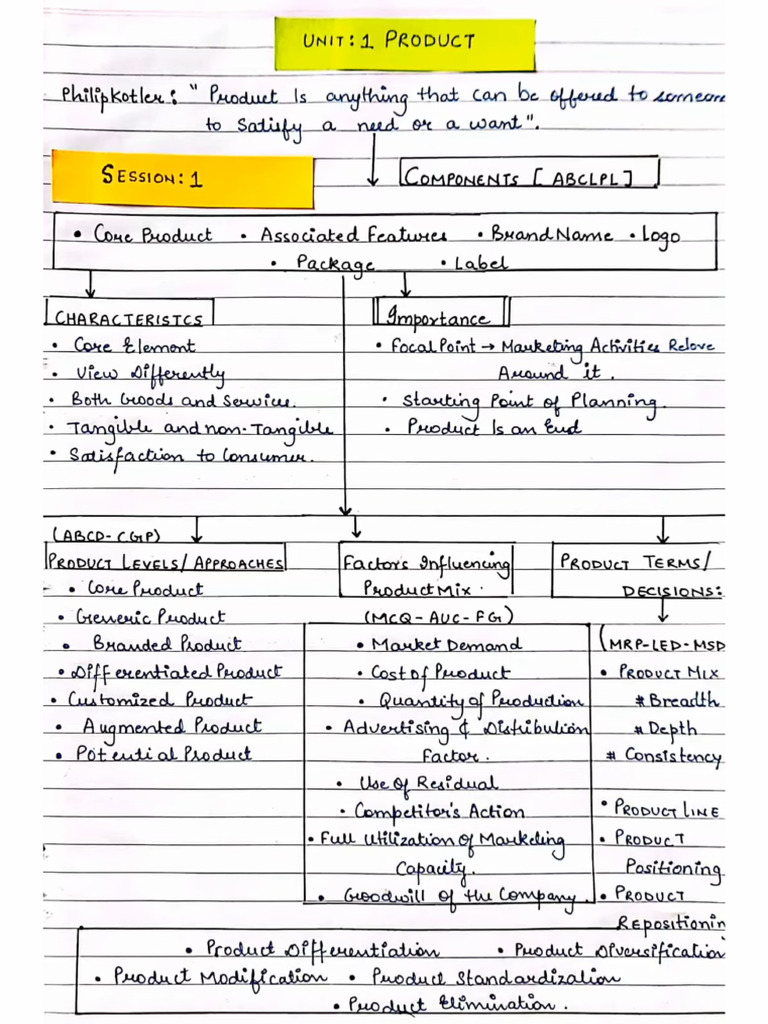 UNIT: 1 PRODUCT
Philip Kotler: " Product Is anything that can be offered to someone
to satisfy a need or a want".
SESSION: 1
COMPONENTS [ABCLPL]
• Core Product • Associated Features • Brand Name • Logo
• Package • Label
CHARACTERISTCS
• Core Element
• View Differently
• Both Goods and Service.
• Tangible and non-Tangible
• Satisfaction to Consumer.
Importance
• Focal Point → Marketing Activities Relove
Around it.
• Starting Point of Planning.
• Product Is an End
(ABCD-CGP)
PRODUCT LEVELS/APPROACHES
• Core Product
• Generic Product
• Branded Product
• Differentiated Product
• Customized Product
• Augmented Product
• Potential Product
Factors Influencing
Product Mix.
(MCQ-AUC-FG)
• Market Demand
• Cost of Product
• Quantity of Production
• Advertising & Distribution
Factor.
• Use of Residual
• Competitor's Action
• Full Utilization of Marketing
Capacity.
• Goodwill of the Company.
PRODUCT TERMS/
DECISIONS:
(MRP-LED-MSD
• PRODUCT MIX
# Breadth
# Depth
# Consistency
• PRODUCT LINE
• PRODUCT
Positioning
• PRODUCT
Repositionin
• Product Differentiation • Product Diversification
• Product Modification • Product Standardization
• Product Elimination.